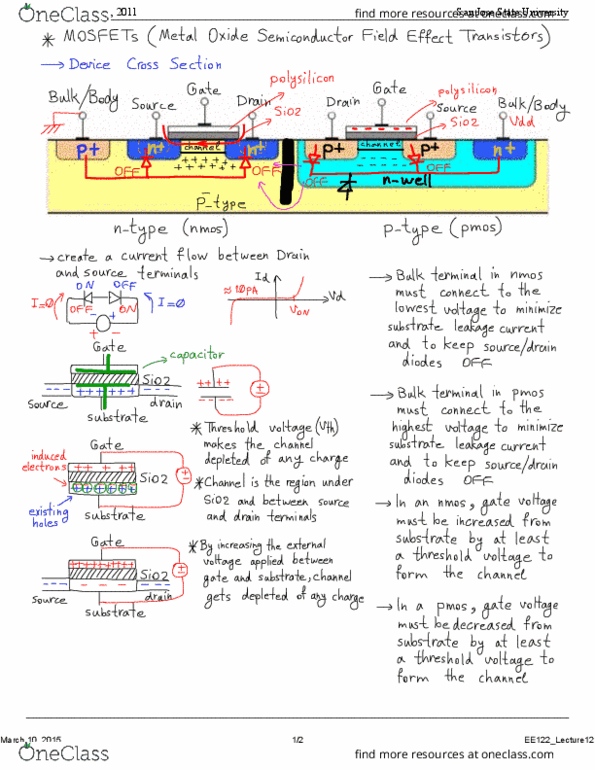 OneClass
2011
San Jose State University
find more resources at oneclass.com
* MOSFETs (Metal Oxide Semiconductor Field Effect Transistors)
→ Device Cross Section
polysilicon
Gate
SiO2
Bulk/Body
Source
Drain
Gate
polysilicon
Drain
Source
SiO2
Bulk/Body
Vdd
p+
n+
channel
n+
p+
channel
p+
n+
++++
+++++
OFF
OFF
OFF
OFF
n-well
p-type
n-type (nmos)
p-type (pmos)
→ create a current flow between Drain
and source terminals
ON OFF
I=∅
OFF
ON
I=∅
Id
≈10PA
Vd
VON
Gate
capacitor
SiO2
++++
source
drain
substrate
++++
Gate
induced
electrons
++++
SiO2
existing
holes
substrate
Gate
SiO2
source
drain
substrate
* Threshold voltage (Vth)
makes the channel
depleted of any charge
* Channel is the region under
SiO2 and between source
and drain terminals
* By increasing the external
voltage applied between
gate and substrate, channel
gets depleted of any charge
→ Bulk terminal in nmos
must connect to the
lowest voltage to minimize
substrate leakage current
and to keep source/drain
diodes OFF
→ Bulk terminal in pmos
must connect to the
highest voltage to minimize
substrate leakage current
and to keep source/drain
diodes OFF
→ In an nmos, gate voltage
must be increased from
substrate by at least
a threshold voltage to
form the channel
→ In a pmos, gate voltage
must be decreased from
substrate by at least
a threshold voltage to
form the channel
March 10, 2015
1/2
EE122_Lecture12
OneClass
find more resources at oneclass.com